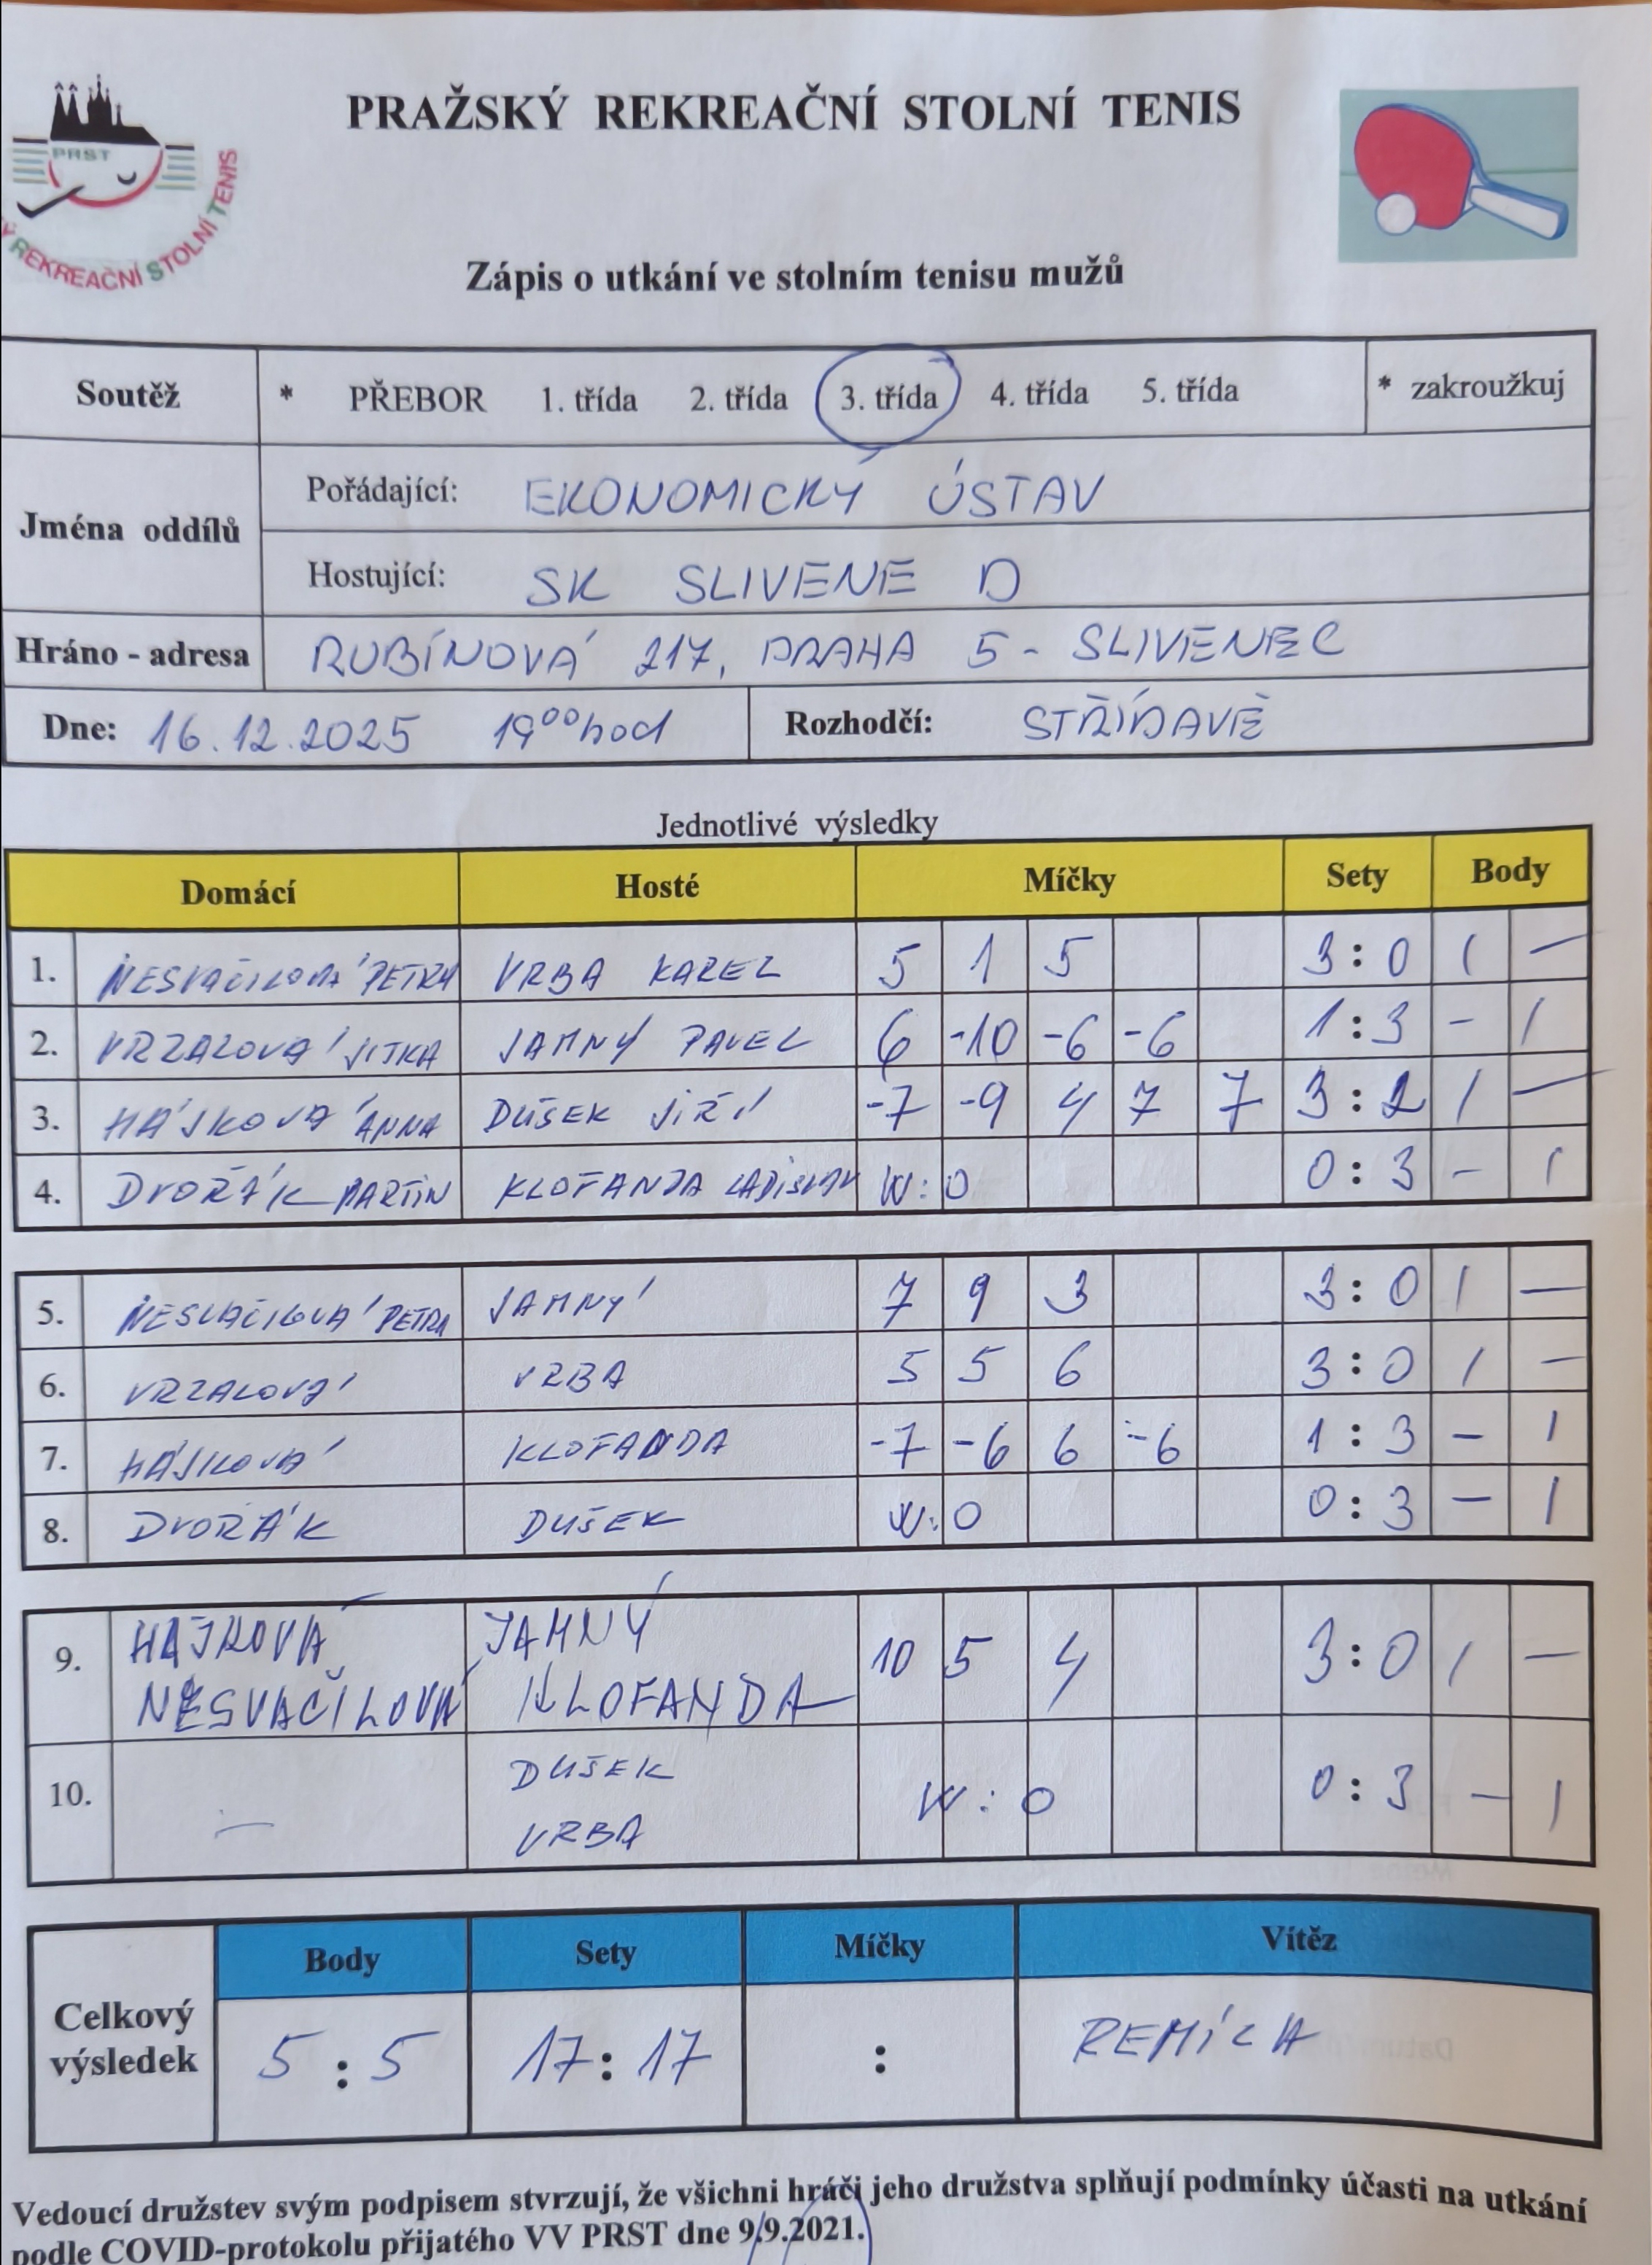 PRAŽSKÝ REKREAČNÍ STOLNÍ TENIS
PRST
REKREAČNÍ STOLNÍ TENIS
Zápis o utkání ve stolním tenisu mužů
Soutěž * PŘEBOR 1. třída 2. třída 3. třída 4. třída 5. třída * zakroužkuj
Jména oddílů
Pořádající: EKONOMICKÝ ÚSTAV
Hostující: SK SLIVENE D
Hráno - adresa RUBÍNOVÁ 217, PRAHA 5 - SLIVENEC
Dne: 16.12.2025 19⁰⁰hod Rozhodčí: STŘÍDAVĚ
Jednotlivé výsledky
Domácí Hosté Míčky Sety Body
1. NESVAČILOVÁ PETRA VRBA KAREL 5 1 5 3:0 1 –
2. VRZALOVÁ JITKA JAMNÝ PAVEL 6 -10 -6 -6 1:3 – 1
3. HÁJKOVÁ ANNA DUŠEK JIŘÍ -7 -9 4 7 7 3:2 1 –
4. DVOŘÁK MARTIN KLOFANDA LADISLAV W:0 0:3 – 1
5. NESVAČILOVÁ PETRA JAMNÝ 7 9 3 3:0 1 –
6. VRZALOVÁ VRBA 5 5 6 3:0 1 –
7. HÁJKOVÁ KLOFANDA -7 -6 6 -6 1:3 – 1
8. DVOŘÁK DUŠEK W:0 0:3 – 1
9. HÁJKOVÁ JAMNÝ 10 5 4 3:0 1 –
NESVAČILOVÁ KLOFANDA
10. – DUŠEK W:0 0:3 – 1
VRBA
Body Sety Míčky Vítěz
Celkový výsledek 5:5 17:17 : REMÍZA
Vedoucí družstev svým podpisem stvrzují, že všichni hráči jeho družstva splňují podmínky účasti na utkání
podle COVID-protokolu přijatého VV PRST dne 9.9.2021.